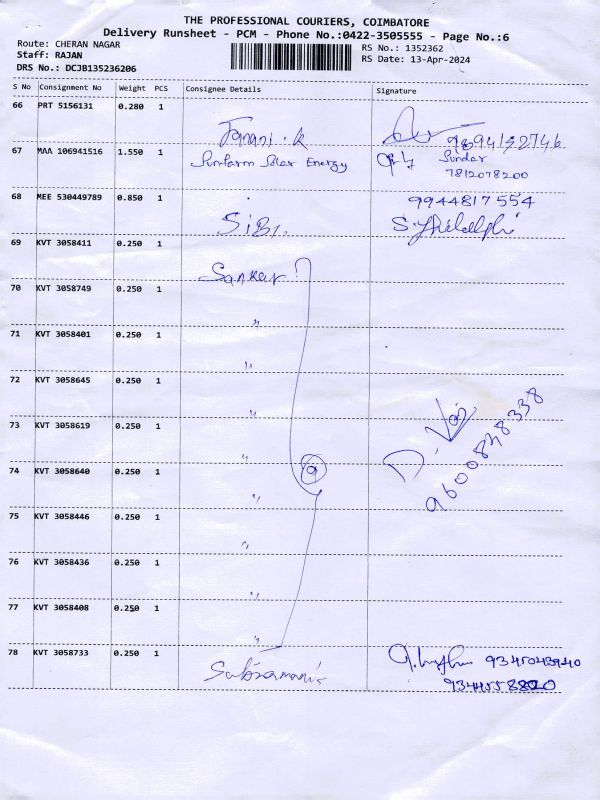 THE PROFESSIONAL COURIERS, COIMBATORE
Delivery Runsheet - PCM - Phone No.:0422-3505555 - Page No.:6
Route: CHERAN NAGAR
Staff: RAJAN
DRS No.: DCJB135236206
RS No.: 1352362
RS Date: 13-Apr-2024
S No Consignment No Weight PCS Consignee Details Signature
66 PRT 5156131 0.280 1
Janani. K 9894132746
67 MAA 106941516 1.550 1
Sunfarm Solar Energy Sundar
7812078200
68 MEE 530449789 0.850 1 9944817554
SiBi.
69 KVT 3058411 0.250 1
Sankar
70 KVT 3058749 0.250 1
"
71 KVT 3058401 0.250 1
"
72 KVT 3058645 0.250 1
"
73 KVT 3058619 0.250 1
"
74 KVT 3058640 0.250 1
9
"
75 KVT 3058446 0.250 1
"
76 KVT 3058436 0.250 1
"
77 KVT 3058408 0.250 1
"
9600878338
78 KVT 3058733 0.250 1
9345043940
9344558820